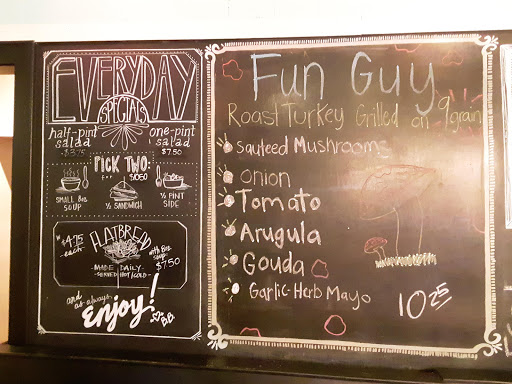 EVERYDAY
SPECIALS
half-pint
salad
$3.75
one-pint
salad
$7.50
PICK TWO
for $10.50
SMALL 8oz
SOUP
½ SANDWICH
½ PINT
SIDE
$4.95
-each-
FLATBREAD
with 8oz
soup
$7.50
-MADE DAILY-
-SERVED HOT/COLD-
and
as always,
Enjoy!
Fun Guy
Roast Turkey Grilled on 9grain
sauteed Mushrooms
onion
Tomato
Arugula
Gouda
Garlic-Herb Mayo
10 25